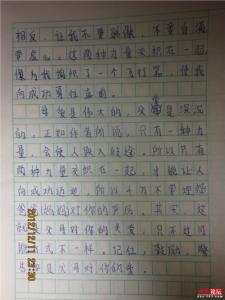 相反，让我不要骄傲，不要自满
带虚心。这两种力量交织在一起
像为我编织了一个飞行器，使我
向成功勇往直前。
母爱是伟大的，父爱是深沉
的。正如作者所说，只有一种力
量，会使人跌入歧途，所以只有
两种力量交织在一起，才能让人
向成功迈进。所以千万不要埋怨
爸爸（妈妈）对你的严厉。其实，这
就是父母对你的关爱，只不过可
能方式不一样。记住，鼓励、警
告都是父母对你的爱。
2012/12/11
22:30